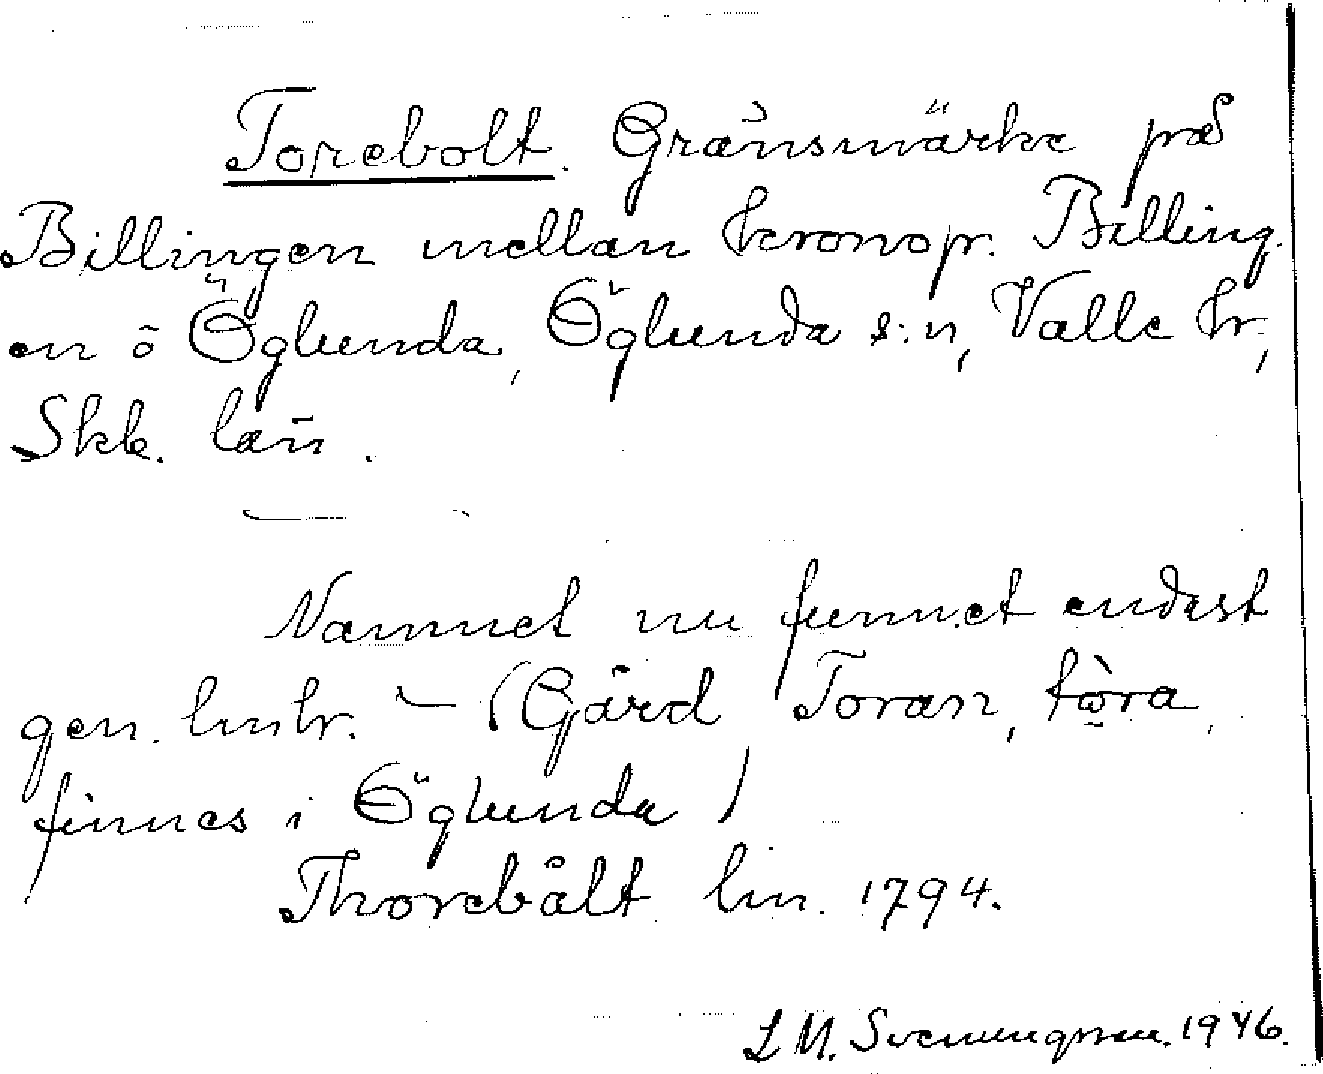 Torebolt. Gränsmärke på
Billingen mellan kronopr. Billing-
en o Öglunda, Öglunda s:n, Valle hr,
Skb. län.
Namnet nu funnet endast
gen. lmhr. – (Gård Toran, tòra,
finnes i Öglunda)
Thorebålt lm. 1794.
L M. Svenungsson. 1946.